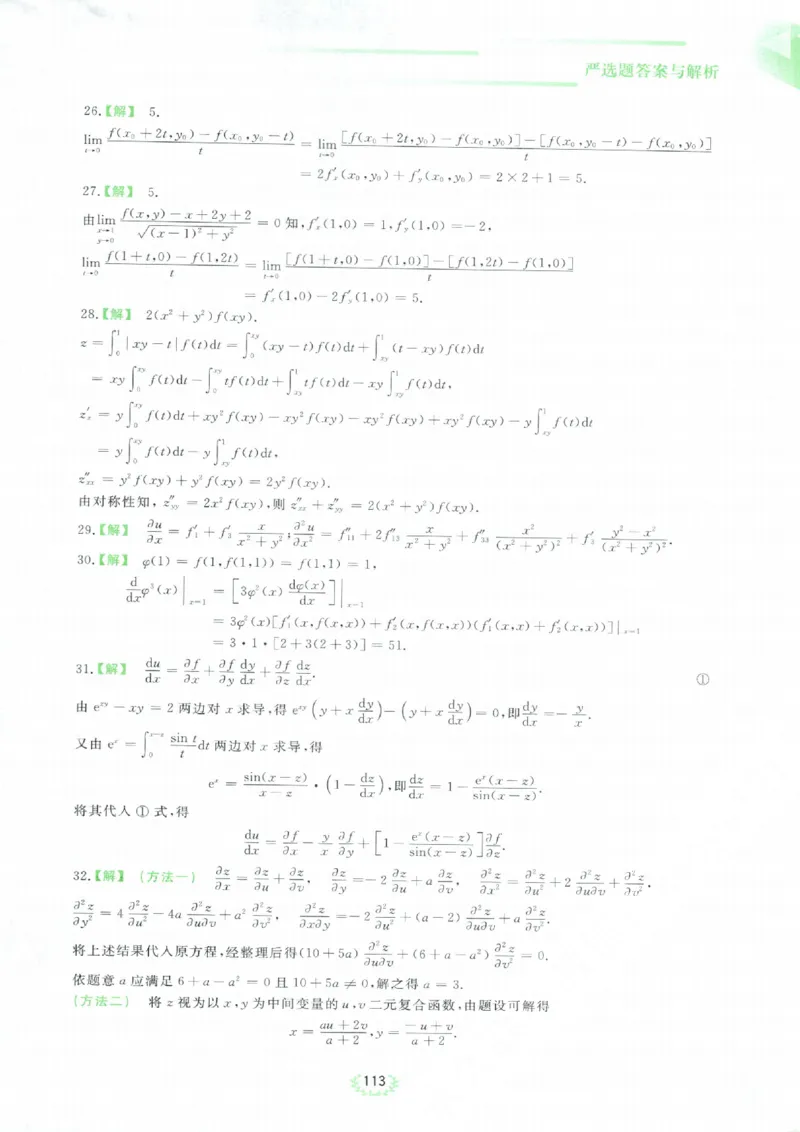 严选题答案与解析
26.【解】 5.
lim_{t→0} \frac{f(x₀+2t,y₀)-f(x₀,y₀-t)}{t} = lim_{t→0} \frac{[f(x₀+2t,y₀)-f(x₀,y₀)]-[f(x₀,y₀-t)-f(x₀,y₀)]}{t}
= 2f′_x(x₀,y₀)+f′_y(x₀,y₀) = 2×2+1 = 5.
27.【解】 5.
由 lim_{x→1, y→0} \frac{f(x,y)-x+2y+2}{\sqrt{(x-1)²+y²}} = 0 知,f′_x(1,0) = 1,f′_y(1,0) =-2,
lim_{t→0} \frac{f(1+t,0)-f(1,2t)}{t} = lim_{t→0} \frac{[f(1+t,0)-f(1,0)]-[f(1,2t)-f(1,0)]}{t}
= f′_x(1,0)-2f′_y(1,0) = 5.
28.【解】 2(x²+y²)f(xy).
z = ∫_0^1 |xy-t|f(t)dt = ∫_0^{xy} (xy-t)f(t)dt + ∫_{xy}^1 (t-xy)f(t)dt
= xy∫_0^{xy} f(t)dt - ∫_0^{xy} tf(t)dt + ∫_{xy}^1 tf(t)dt - xy∫_{xy}^1 f(t)dt,
z′_x = y∫_0^{xy} f(t)dt + xy²f(xy) - xy²f(xy) - xy²f(xy) + xy²f(xy) - y∫_{xy}^1 f(t)dt
= y∫_0^{xy} f(t)dt - y∫_{xy}^1 f(t)dt,
z″_{xx} = y²f(xy)+y²f(xy) = 2y²f(xy).
由对称性知, z″_{yy} = 2x²f(xy),则 z″_{xx}+z″_{yy} = 2(x²+y²)f(xy).
29.【解】 \frac{∂u}{∂x} = f′_1+f′_3 \frac{x}{x²+y²};\frac{∂²u}{∂x²} = f″_{11}+2f″_{13} \frac{x}{x²+y²}+f″_{33} \frac{x²}{(x²+y²)²}+f′_3 \frac{y²-x²}{(x²+y²)²}.
30.【解】 φ(1) = f(1,f(1,1)) = f(1,1) = 1,
\frac{d}{dx}φ³(x)|_{x=1} = [3φ²(x)\frac{dφ(x)}{dx}]|_{x=1}
= 3φ²(x)[f′_1(x,f(x,x))+f′_2(x,f(x,x))(f′_1(x,x)+f′_2(x,x))]|_{x=1}
= 3·1·[2+3(2+3)] = 51.
31.【解】 \frac{du}{dx} = \frac{∂f}{∂x}+\frac{∂f}{∂y}\frac{dy}{dx}+\frac{∂f}{∂z}\frac{dz}{dx}. ①
由 e^{xy}-xy = 2 两边对 x 求导,得 e^{xy}(y+x\frac{dy}{dx})-(y+x\frac{dy}{dx}) = 0,即\frac{dy}{dx} =-\frac{y}{x}.
又由 e^x = ∫_0^{x-z} \frac{sin t}{t}dt 两边对 x 求导,得
e^x = \frac{sin(x-z)}{x-z}·(1-\frac{dz}{dx}),即\frac{dz}{dx} = 1-\frac{e^x(x-z)}{sin(x-z)}.
将其代入 ① 式,得
\frac{du}{dx} = \frac{∂f}{∂x}-\frac{y}{x}\frac{∂f}{∂y}+[1-\frac{e^x(x-z)}{sin(x-z)}]\frac{∂f}{∂z}.
32.【解】 (方法一) \frac{∂z}{∂x} = \frac{∂z}{∂u}+\frac{∂z}{∂v}, \frac{∂z}{∂y} =-2\frac{∂z}{∂u}+a\frac{∂z}{∂v}, \frac{∂²z}{∂x²} = \frac{∂²z}{∂u²}+2\frac{∂²z}{∂u∂v}+\frac{∂²z}{∂v²},
\frac{∂²z}{∂y²} = 4\frac{∂²z}{∂u²}-4a\frac{∂²z}{∂u∂v}+a²\frac{∂²z}{∂v²}, \frac{∂²z}{∂x∂y} =-2\frac{∂²z}{∂u²}+(a-2)\frac{∂²z}{∂u∂v}+a\frac{∂²z}{∂v²}.
将上述结果代入原方程,经整理后得(10+5a)\frac{∂²z}{∂u∂v}+(6+a-a²)\frac{∂²z}{∂v²} = 0.
依题意 a 应满足 6+a-a² = 0 且 10+5a ≠ 0,解之得 a = 3.
(方法二) 将 z 视为以 x,y 为中间变量的 u,v 二元复合函数,由题设可解得
x = \frac{au+2v}{a+2},y = \frac{-u+v}{a+2}.
113